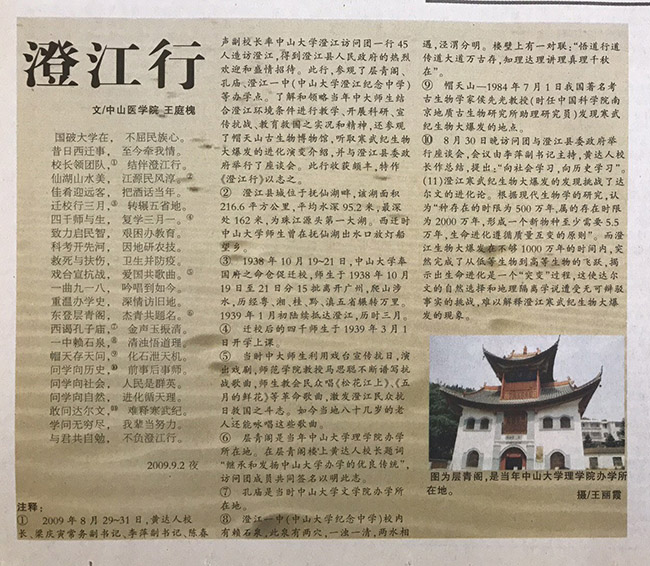 澄江行
文/中山医学院 王庭槐
国破大学在， 不屈民族心。
昔日西迁事， 至今牵我情。
校长领团队，① 结伴澄江行。
仙湖山水美， 江源民风淳。②
佳肴迎远客， 把酒话当年。
迁校行三月，③ 转辗五省地。
四千师与生， 复学三月一。④
致力启民智， 艰困办教育。
科考开先河， 因地研农技。
救死与扶伤， 卫生并防疫。
戏台宣抗战， 爱国共歌曲。⑤
一曲九一八， 吟唱到如今。
重温办学史， 深情访旧地。
东登层青阁， 杰青共题名。⑥
西谒孔子庙，⑦ 金声玉振清。
一中赖石泉，⑧ 清浊悟道理。
帽天存天问，⑨ 化石泄天机。
问学向历史，⑩ 前事后事师。
问学向社会， 人民是群英。
问学向自然， 进化循天理。
敢问达尔文，⑾ 难释寒武纪。
学问无穷尽， 我辈当努力。
与君共自勉， 不负澄江行。
2009.9.2 夜
注释：
① 2009 年 8 月 29~31 日，黄达人校
长、梁庆寅常务副书记、李萍副书记、陈春
声副校长率中山大学澄江访问团一行 45
人造访澄江，得到澄江县人民政府的热烈
欢迎和盛情招待。此行，参观了层青阁、
孔庙、澄江一中（中山大学澄江纪念中学）
等办学点。了解和领略当年中大师生结
合澄江环境条件进行教学、开展科研、宣
传抗战、教育救国之实况和精神，还参观
了帽天山古生物博物馆，听取寒武纪生物
大爆发的进化演变介绍，并与澄江县委政
府举行了座谈会。此行收获颇丰，特作
《澄江行》以志之。
② 澄江县城位于抚仙湖畔，该湖面积
216.6 平方公里，平均水深 95.2 米，最深
处 162 米，为珠江源头第一大湖。西迁时
中山大学师生曾在抚仙湖出水口放灯船
望乡。
③ 1938 年 10 月 19~21 日，中山大学奉
国府之命仓促迁校，师生于 1938 年 10 月
19 日至 21 日分 15 批离开广州，爬山涉
水，历经粤、湘、桂、黔、滇五省辗转万里。
1939 年 1 月初陆续抵达澄江，历时三月。
④ 迁校后的四千师生于 1939 年 3 月 1
日开学上课。
⑤ 当时中大师生利用戏台宣传抗日，演
出戏剧，师范学院教授马思聪不断谱写抗
战歌曲，师生教会民众唱《松花江上》、《五
月的鲜花》等革命歌曲，激发澄江民众抗
日救国之斗志。如今当地八十几岁的老
人还能咏唱这些歌曲。
⑥ 层青阁是当年中山大学理学院办学
所在地。在层青阁楼上黄达人校长题词
“继承和发扬中山大学办学的优良传统”，
访问团成员共同签名以明此志。
⑦ 孔庙是当时中山大学文学院办学所
在地。
⑧ 澄江一中（中山大学纪念中学）校内
有赖石泉，此泉有两穴，一浊一清，两水相
遇，泾渭分明。楼壁上有一对联：“悟道行道
传道大道万古存，知理达理讲理真理千秋
在”。
⑨ 帽天山—1984 年 7 月 1 日我国著名考
古生物学家侯先光教授（时任中国科学院南
京地质古生物研究所助理研究员）发现寒武
纪生物大爆发的地点。
⑩ 8 月 30 日晚访问团与澄江县委政府举
行座谈会，会议由李萍副书记主持，黄达人校
长作总结，提出：“向社会学习，向历史学习”。
(11)澄江寒武纪生物大爆发的发现挑战了达
尔文的进化论。根据现代生物学的研究，认
为“种存在的时限为 500 万年，属的存在时限
为 2000 万年，形成一个新物种至少需要 5.5
万年，生命进化遵循质量互变的原则”。而澄
江生物大爆发在不够 1000 万年的时间内，突
然完成了从低等生物到高等生物的飞跃，揭
示出生命进化是一个“突变”过程，这使达尔
文的自然选择和地理隔离学说遭受无可辩驳
事实的挑战，难以解释澄江寒武纪生物大爆
发的现象。
图为层青阁，是当年中山大学理学院办学所
在地。
摄/王丽霞